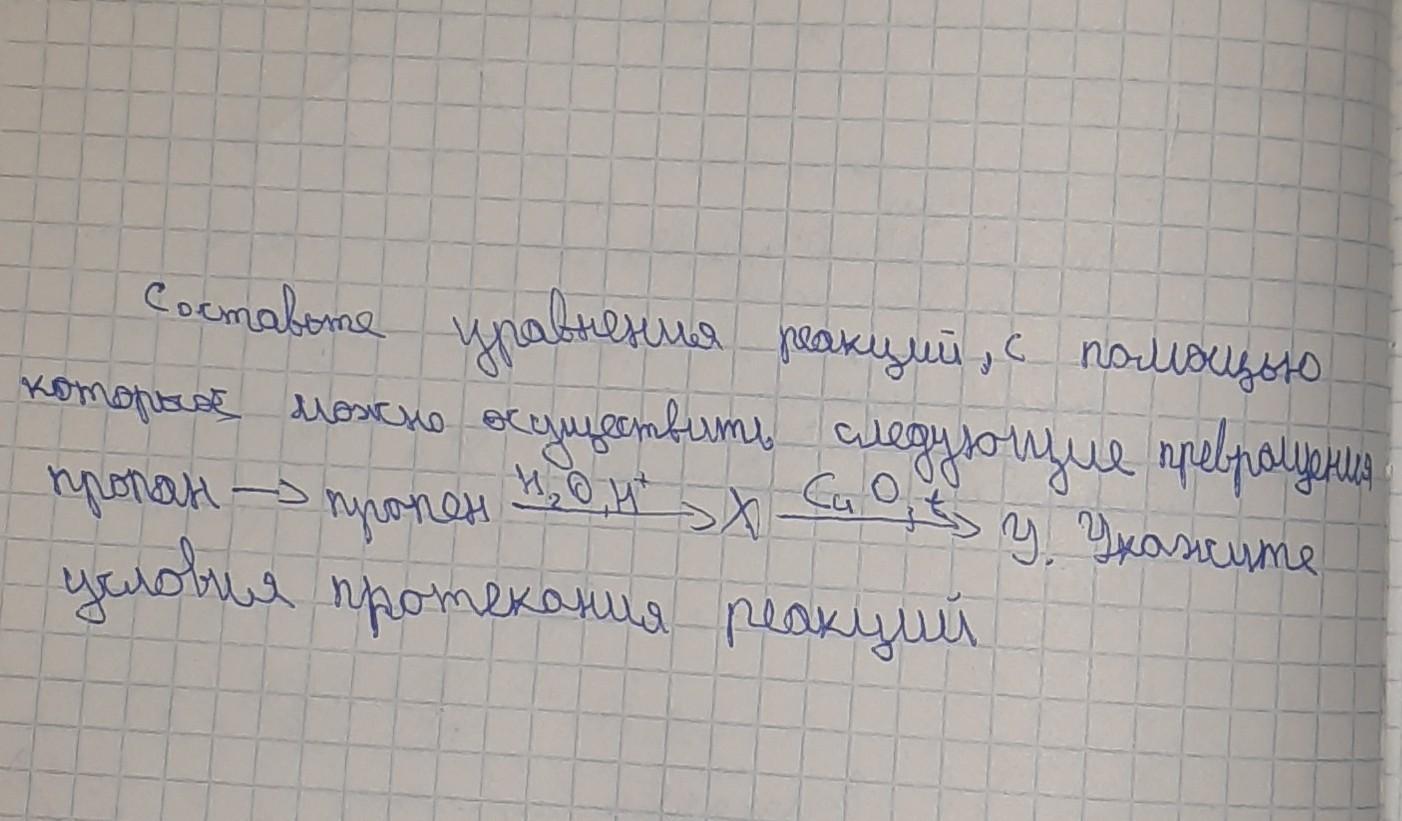 Составьте уравнения реакций, с помощью
которых можно осуществить следующие превращения
пропан → пропен H₂O, H⁺ → X CuO, t → У. Укажите
условия протекания реакций